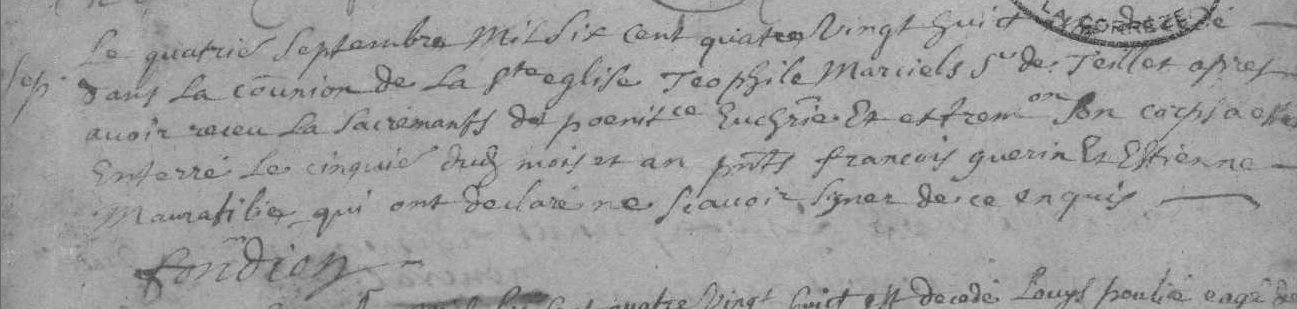 Le quatrie Septembre Mil Six cent quatre Vingt huict est decedé
Sep. dans La coũnion de La Ste eglise Teophile Marciels Sr de Teillet apres
avoir receu La Sacremants de poenitce Euchrie Et extremon Son corps a esté
Enterré Le cinquie dud mois et an pnts francois guerin Et Estienne
Maurasilie qui ont declaré ne Scavoir Signer de ce enquis
fondion
quatre Vingt huict est decedé Louys poulie eagé de
LA CORREZE